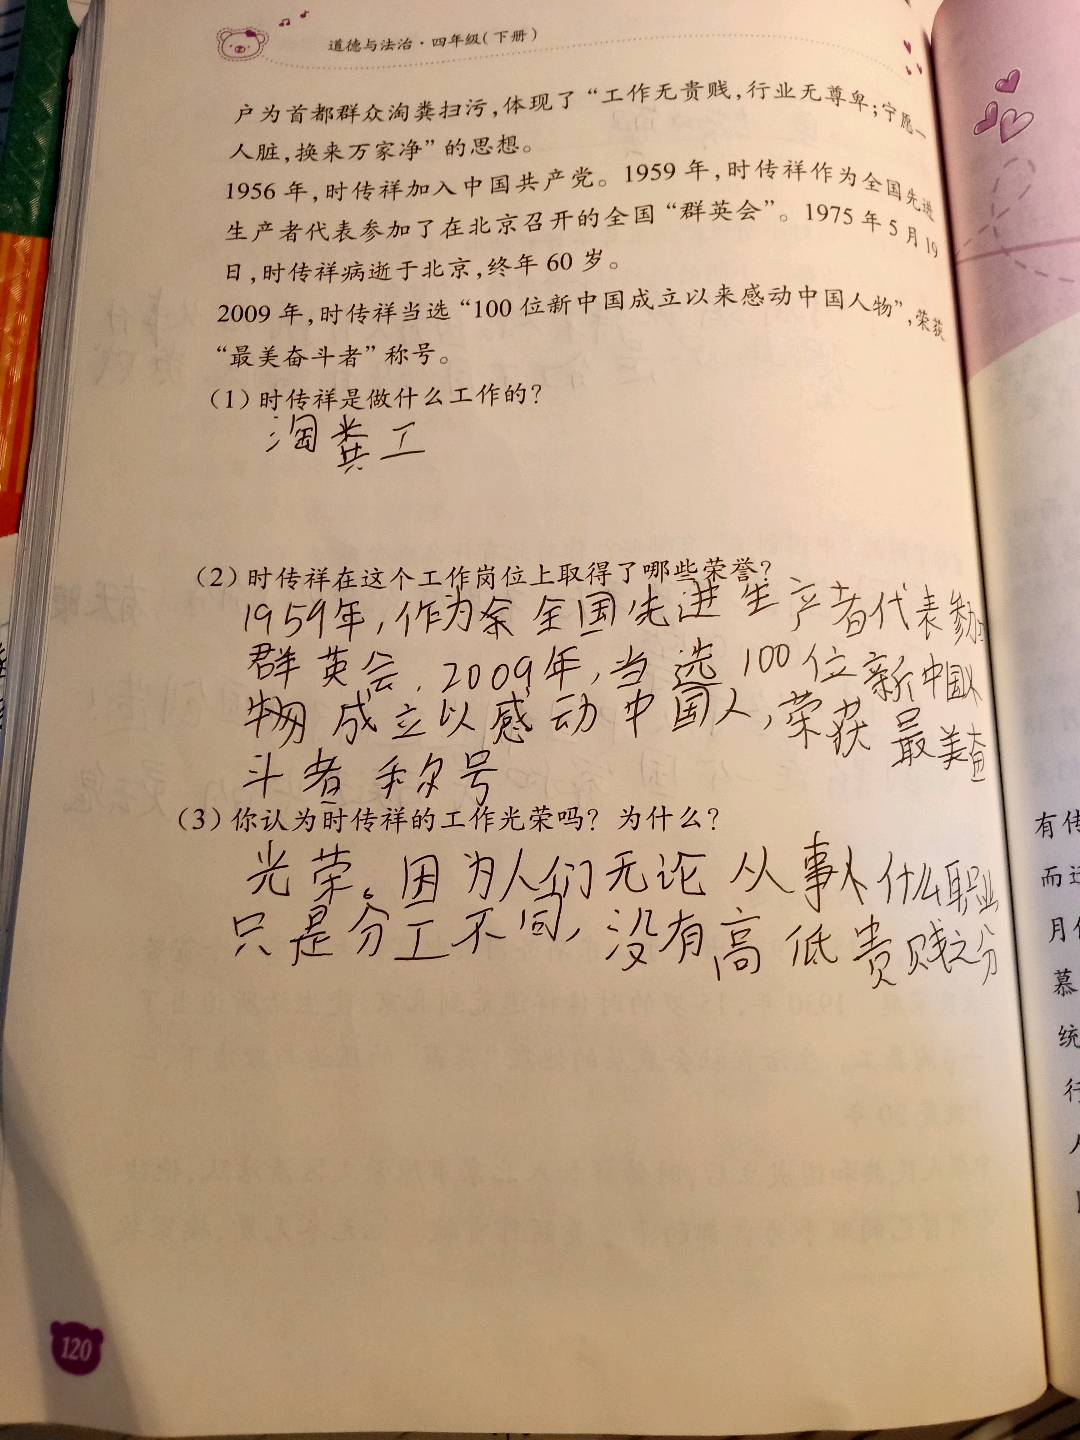 道德与法治·四年级(下册)
户为首都群众淘粪扫污,体现了“工作无贵贱,行业无尊卑;宁愿一
人脏,换来万家净”的思想。
1956年,时传祥加入中国共产党。1959年,时传祥作为全国先进
生产者代表参加了在北京召开的全国“群英会”。1975年5月19
日,时传祥病逝于北京,终年60岁。
2009年,时传祥当选“100位新中国成立以来感动中国人物”,荣获
“最美奋斗者”称号。
(1)时传祥是做什么工作的?
淘粪工
(2)时传祥在这个工作岗位上取得了哪些荣誉?
1959年,作为余全国先进生产者代表参加
群英会.2009年,当选100位新中国人
物成立以感动中国人,荣获最美奋
斗者称号
(3)你认为时传祥的工作光荣吗?为什么?
光荣。因为人们无论从事什么职业
只是分工不同,没有高低贵贱之分
120
有传
而
月
慕
统
行
人